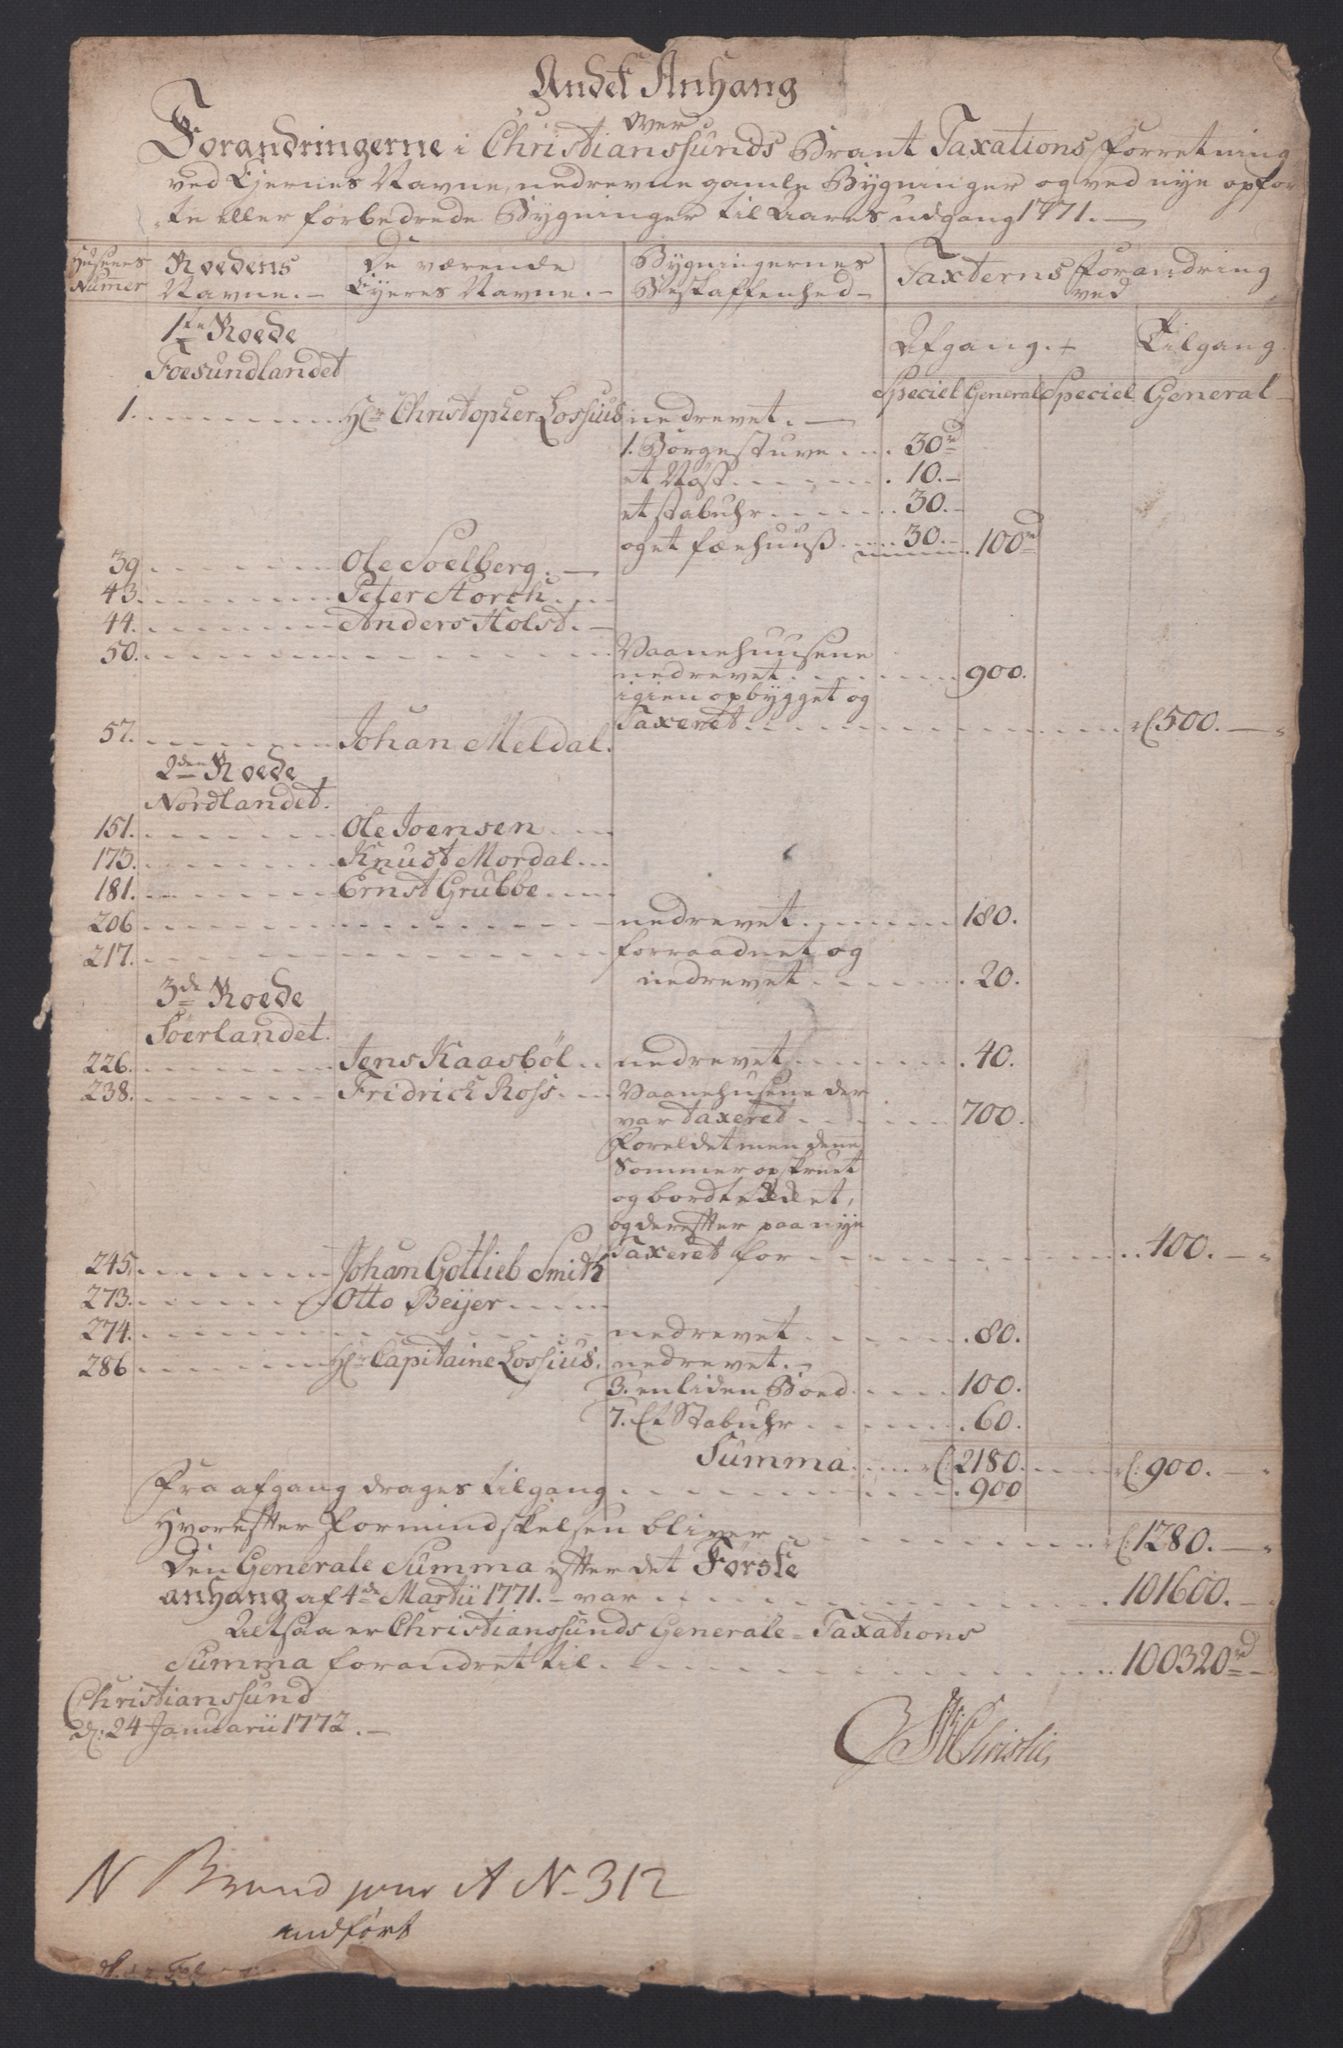 Andet Anhang
over
Forandringerne i Christianssunds Brant Taxations Forretning
ved Ejernes Navne, nedrevne gamle Bygninger og ved nye opfør
te eller forbedrede Bygninger til Aarets udgang 1771. —
Husenes Numer
Roedens Navne. —
De værende Ejeres Navne. —
Bygningernes Beskaffenhed —
Taxterns Forandring ved
1te Roede
Afgang. Tilgang.
Foesundlandet
Speciel General Speciel General
1. Hr Christopher Lossius nedrevet. —
1. Borgestuve 30rd
et Nøst 10. —
et stabuhr 30. —
og et fæehuus 30. — 100rd
39. Ole Soelberg. —
43. Peter Storch
44. Anders Holst. —
50. Vaanehuusene
nedrevet 900.
igien opbygget og
57. Johan Meldal. Taxeret 500. —
2den Roede
Nordlandet.
151. Ole Joensen
173. Knudt Mordal
181. Ernst Grubbe
206 nedrevet 180.
217. forraadnet og
nedrevet 20.
3de Roede
Søerlandet.
226. Jens Kaasbøl nedrevet 40.
238. Fridrich Ross Vaanehusene der
var taxeret 700.
Foreldet men dene
Sommer opskruet
og bordkledet,
og derefter paa nye
Taxeret for 400. —
245. Johan Gotlieb Smith
273. Otto Beijer
274. nedrevet 80.
286 Hr Capitaine Lossius, nedrevet. —
3. en liden Boed 100.
7. Et Stabuhr 60.
Summa 2180. 900. —
Fra afgang drages tilgang 900
Hvorefter Formindskelsen bliver 1280. —
Den Generale Summa efter det Første
anhang af 4de Martii 1771. — var 101600. —
Altsaa er Christianssunds Generale-Taxations
Summa forandret til 100320rd —
Christianssund
d: 24 Januarii 1772. —
Christie,
N Brand jour A N 312
indført